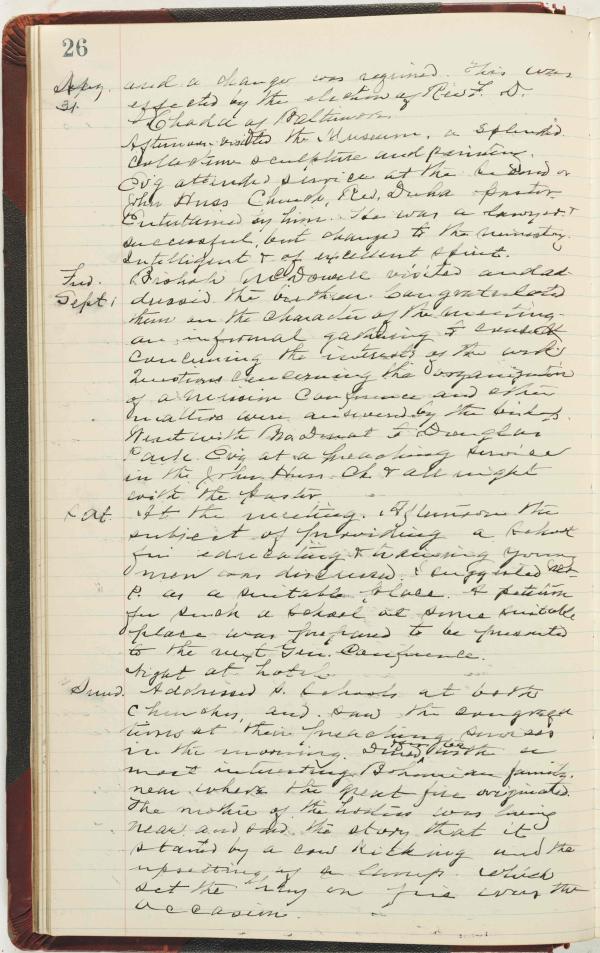 26
and a change was required. This was
31. effected by the election of Rev. F. D.
Chada of Baltimore.
Afternoon visited the Museum, a splendid
collection sculpture and painting.
Evg attended service at the or
John Huss Church, Rev. pastor.
Entertained by him. He was a lawyer &
successful, but changed to the ministry.
Intelligent & of excellent spirit.
Frid. Bishop McDowell visited and ad-
Sept. 1 dressed the brethren. Congratulated
them on the character of the meeting-
an informal gathering to consult
concerning the interests of the work.
Questions concerning the organization
of a Mission Conference and other
matters were answered by the bishop.
Went with to Douglas
Park. Evg at a preaching service
in the John Huss Ch. & all night
with the pastor.
Sat. At the meeting. Afternoon the
subject of providing a school
for educating & training young
men was discussed. I suggested Mt
P. as a suitable place. A petition
for such a school at some suitable
place was prepared to be presented
to the next Gen. Conference.
Night at hotel.
Sund. Addressed S. Schools at both
churches, and saw the congrega
tions at their preaching services
in the morning. Dined with a
most interesting Bohemian family,
near where the great fire originated.
The mother of the hostess was living
near and said the story that it
started by a cow kicking and the
upsetting of a lamp which
set the hay on fire was the
occasion.